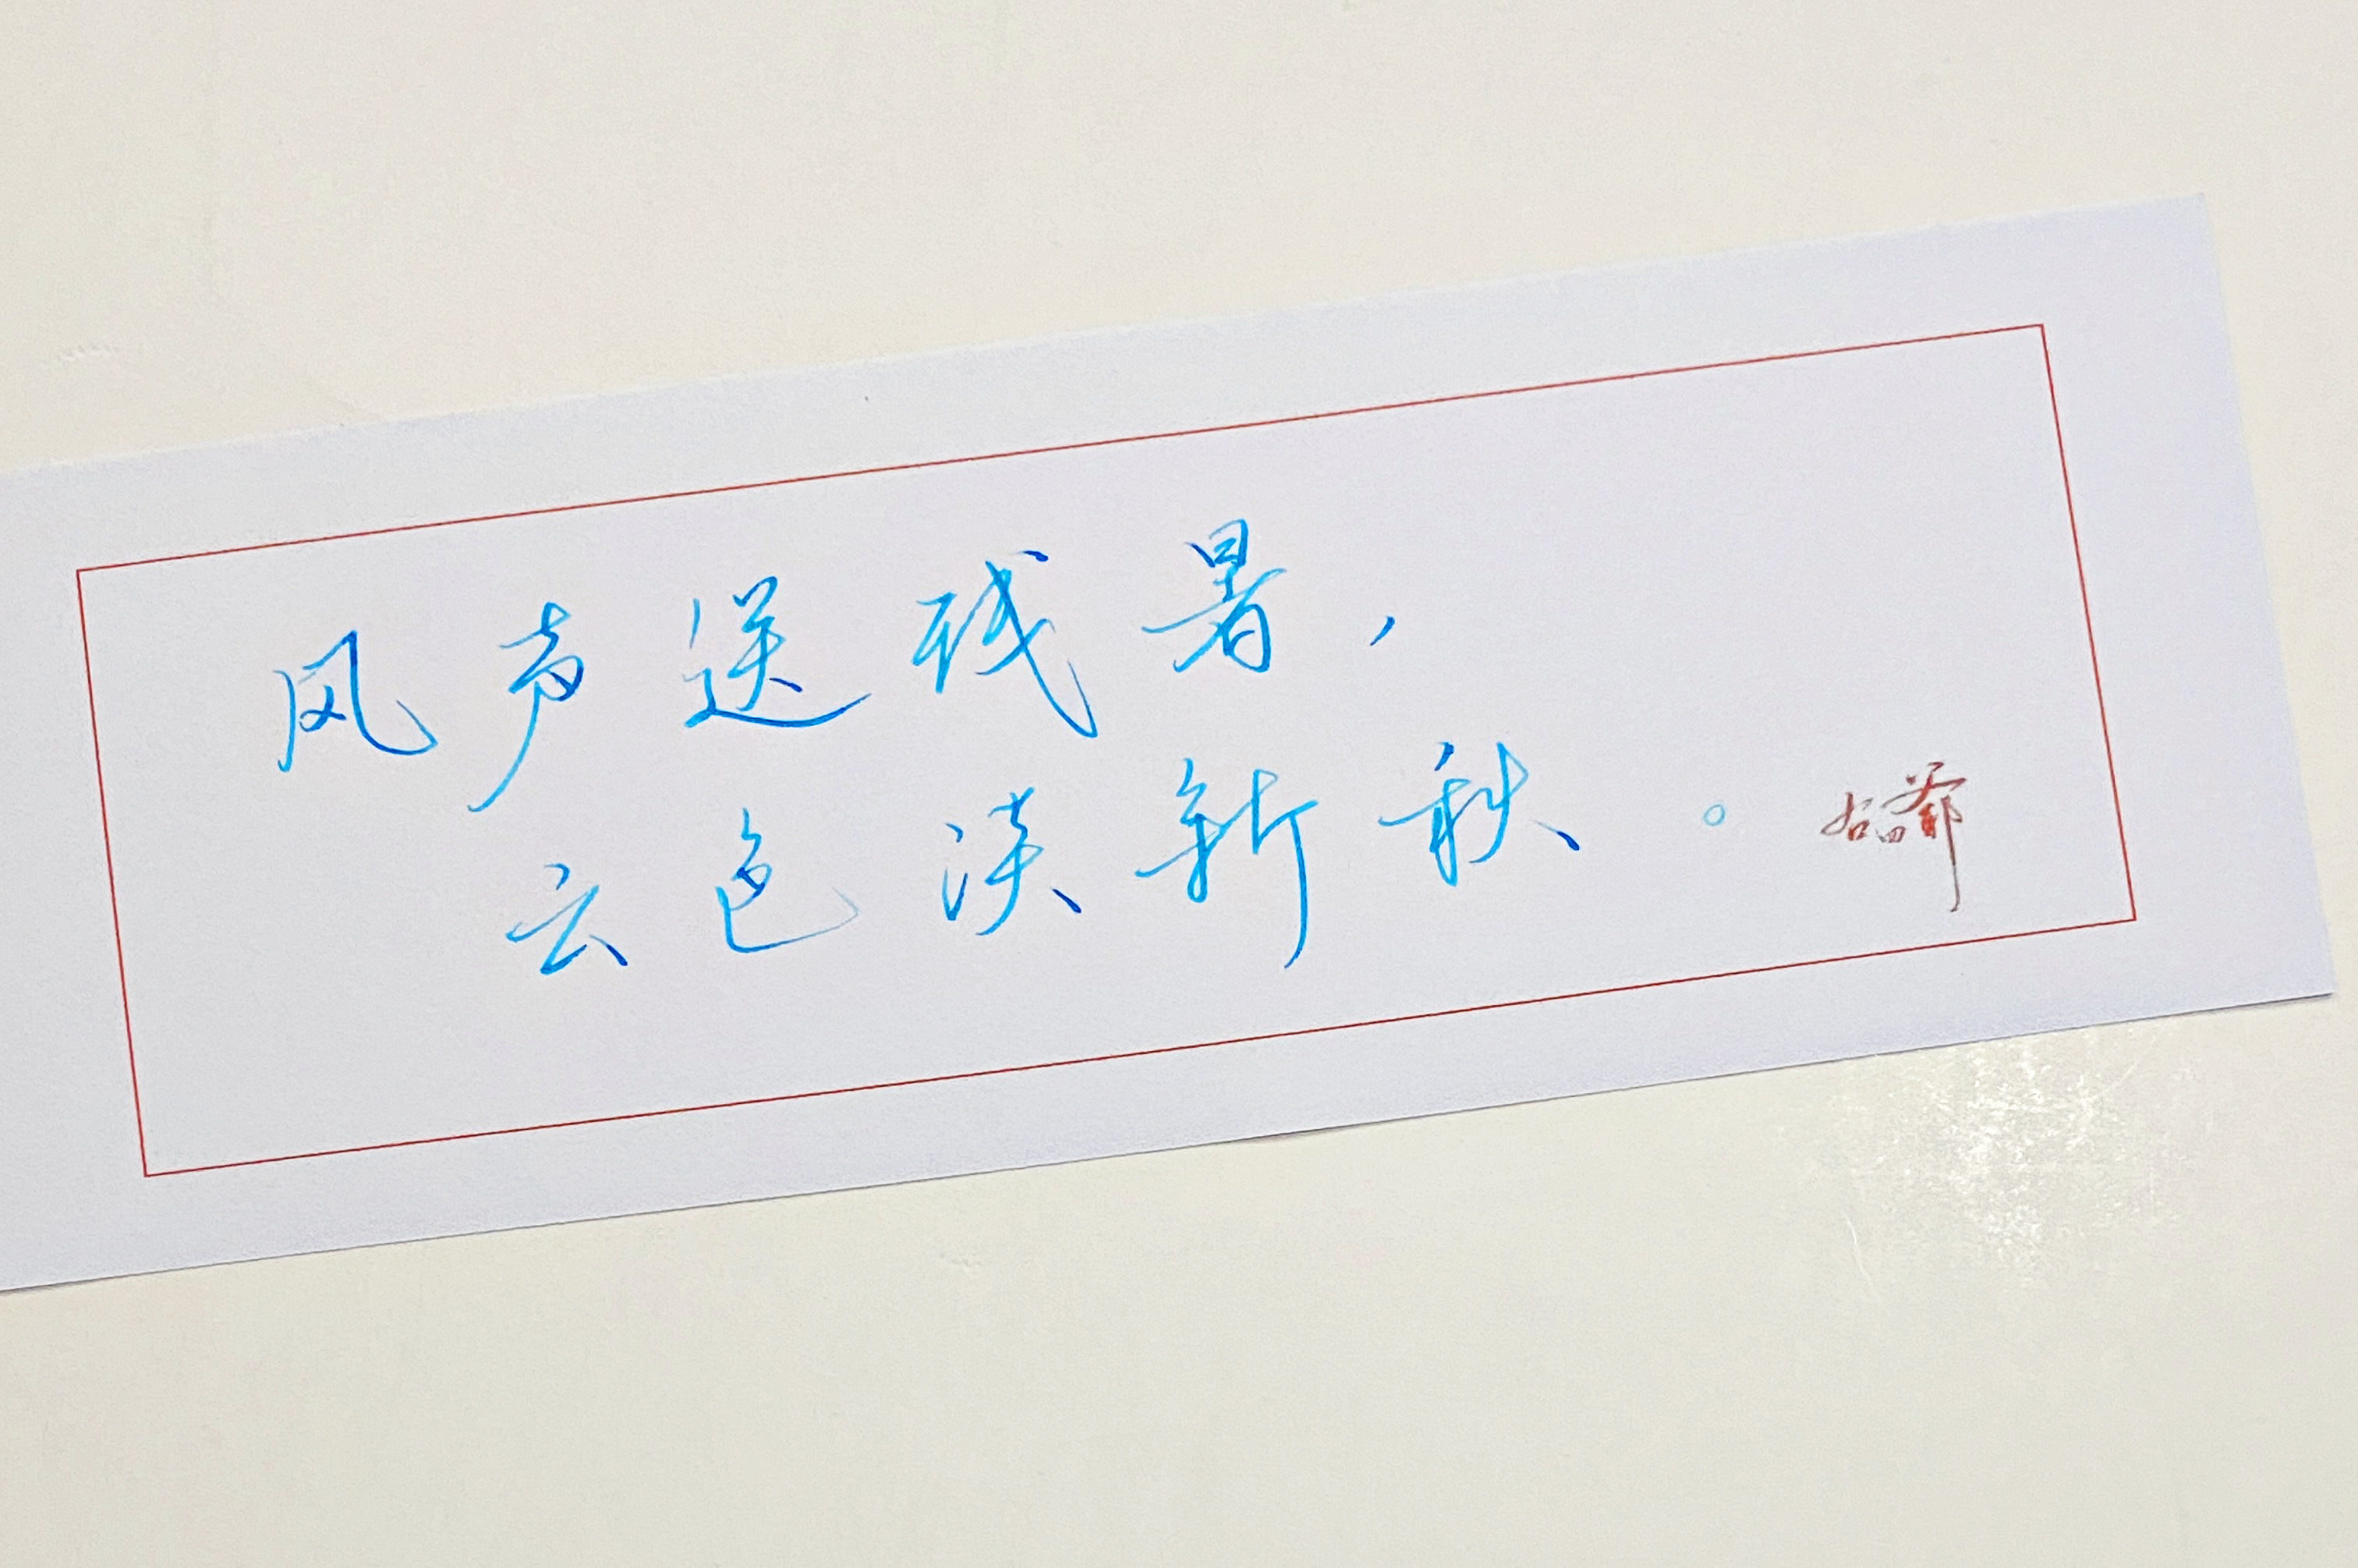 风声送残暑，
云色淡新秋。